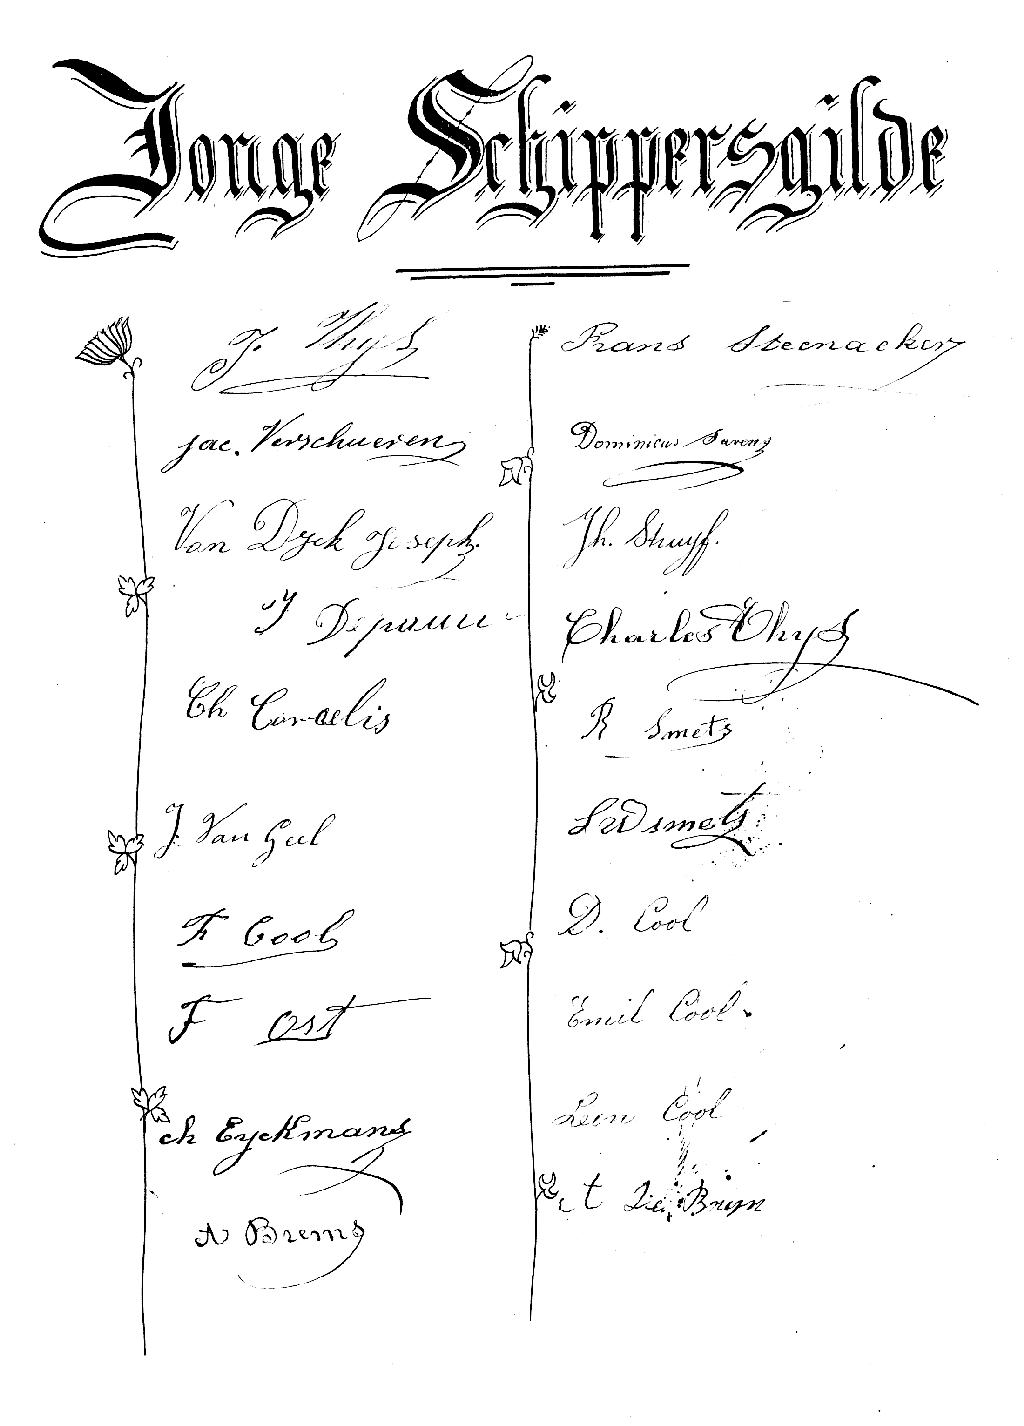 Jonge Schippersgilde
J. Thys
Jac. Verschueren
Van Dyck Joseph.
J Depauw
Ch Cornelis
J. Van Geel
F Cool
F Ost
ch Eyckmans
A Brems
Frans Steenackers
Dominicus Sarens
Jh. Stuyf.
Charles Thys
R Smets
Lud smets
D. Cool
Emil Cool
Leon Cool
De Bruyn